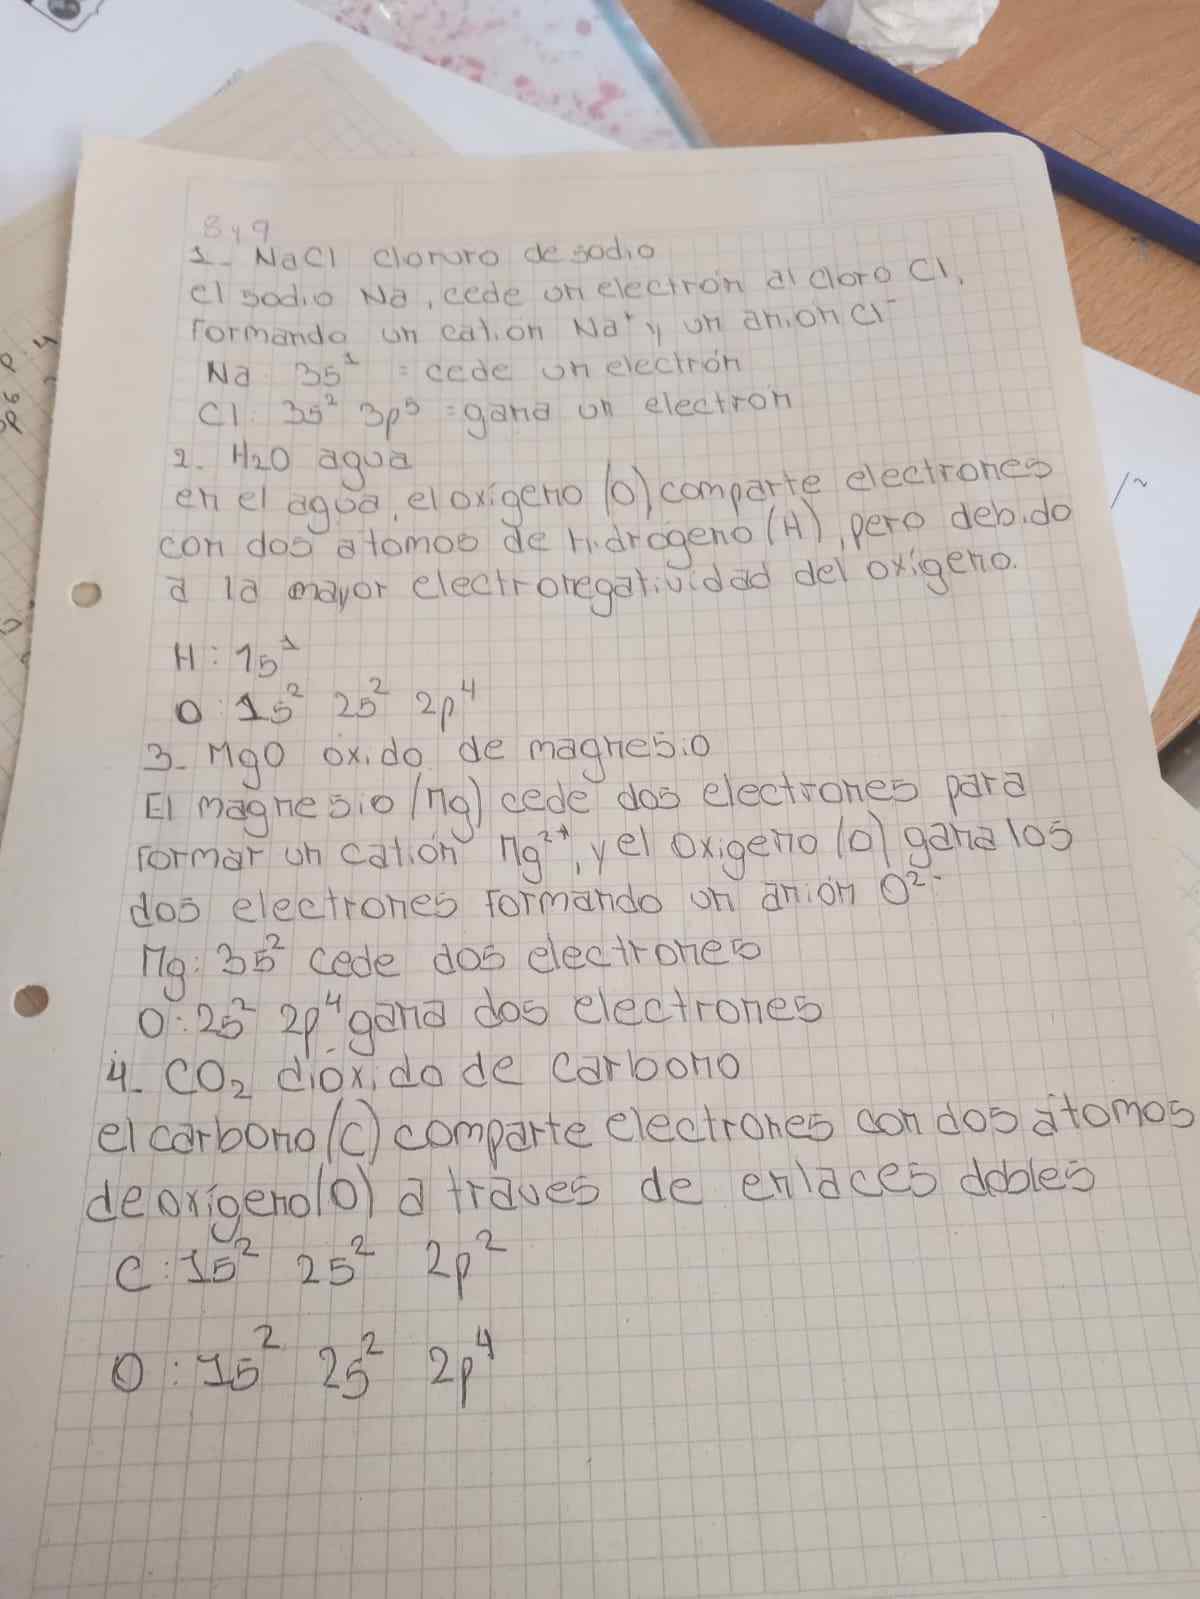 8 y 9
1- NaCl cloruro de sodio
el sodio Na, cede un electrón al cloro Cl,
formando un catión Na⁺ y un anión Cl⁻
Na: 3s¹ = cede un electrón
Cl: 3s² 3p⁵ = gana un electron
2. H₂O agua
en el agua, el oxígeno (O) comparte electrones
con dos atomos de Hidrógeno (H), pero debido
a la mayor electronegatividad del oxígeno.
H: 1s¹
O: 1s² 2s² 2p⁴
3- MgO óxido de magnesio
El magnesio (Mg) cede dos electrones para
formar un catión Mg²⁺, y el oxigeno (O) gana los
dos electrones formando un anión O²⁻
Mg: 3s² cede dos electrones
O: 2s² 2p⁴ gana dos electrones
4- CO₂ dióxido de carbono
el carbono (C) comparte electrones con dos átomos
de oxígeno (O) a traves de enlaces dobles
C: 1s² 2s² 2p²
O: 1s² 2s² 2p⁴